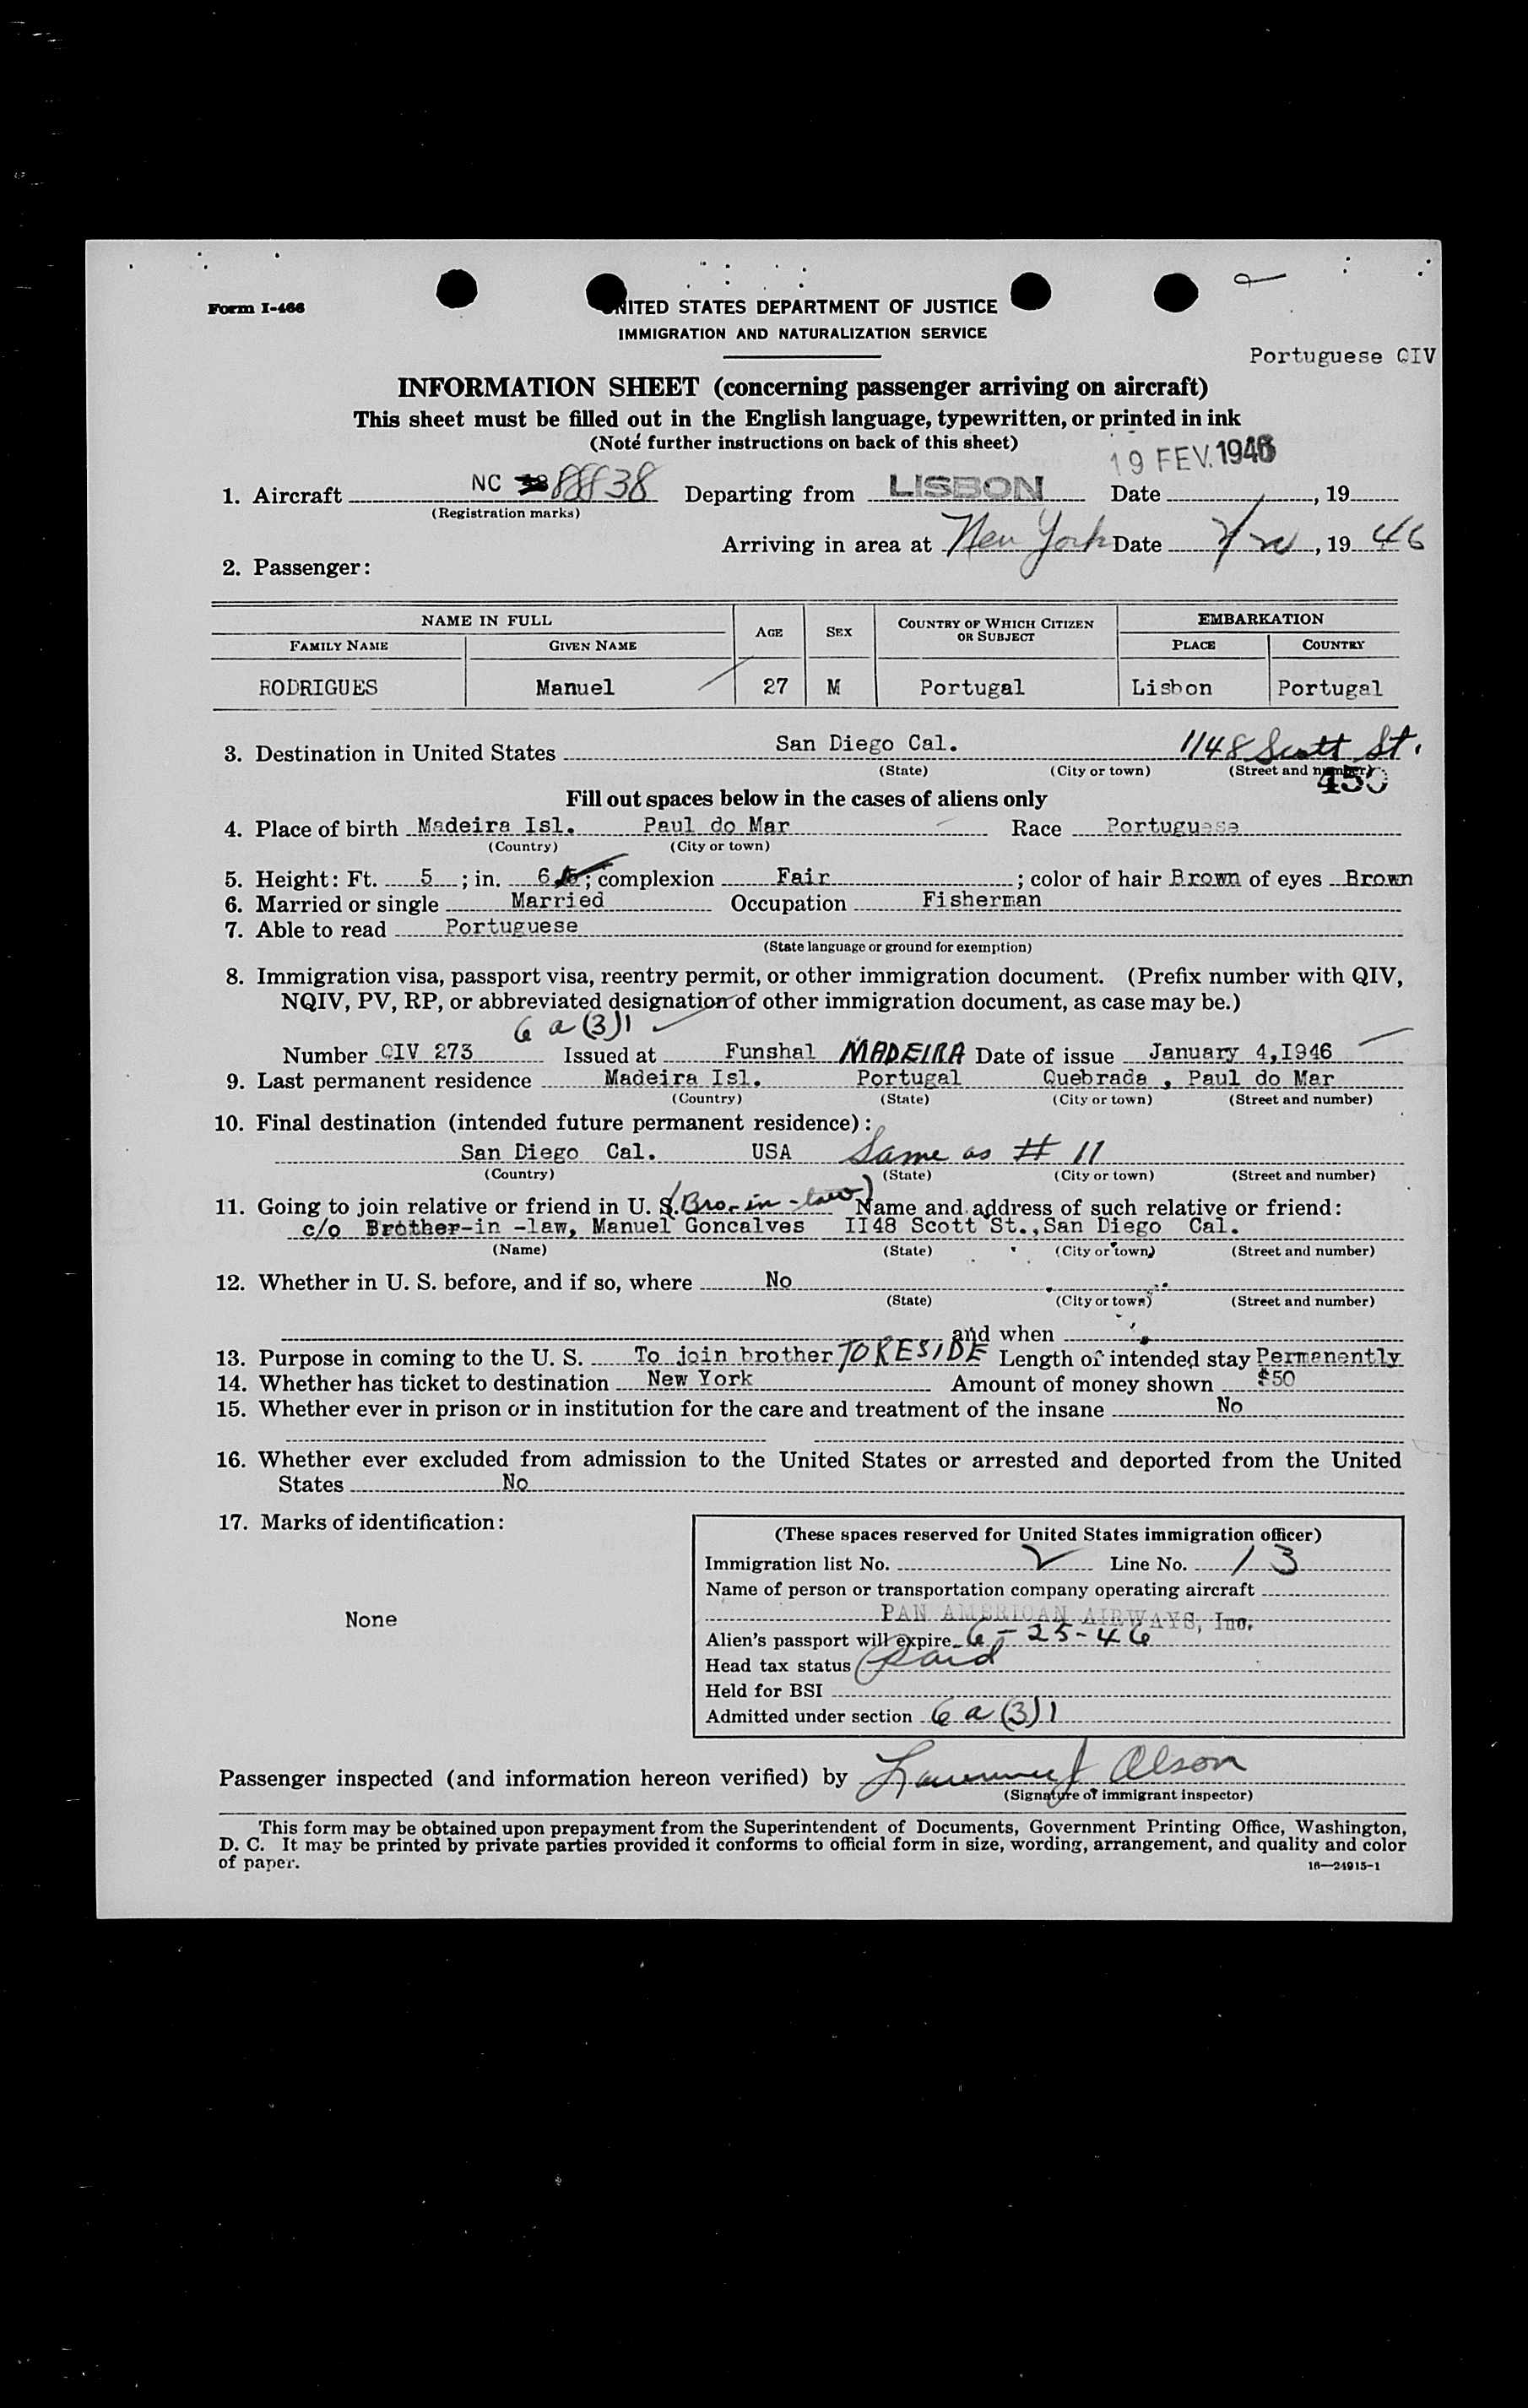 Form I-466
UNITED STATES DEPARTMENT OF JUSTICE
IMMIGRATION AND NATURALIZATION SERVICE
Portuguese QIV
INFORMATION SHEET (concerning passenger arriving on aircraft)
This sheet must be filled out in the English language, typewritten, or printed in ink
(Note further instructions on back of this sheet)
19 FEV. 1946
1. Aircraft NC 88838 Departing from LISBON Date , 19
(Registration marks)
Arriving in area at New York Date 2/20, 19 46
2. Passenger:
NAME IN FULL AGE SEX COUNTRY OF WHICH CITIZEN OR SUBJECT EMBARKATION
FAMILY NAME GIVEN NAME PLACE COUNTRY
RODRIGUES Manuel 27 M Portugal Lisbon Portugal
3. Destination in United States San Diego Cal. 1148 Scott St.
(State) (City or town) (Street and number)
450
Fill out spaces below in the cases of aliens only
4. Place of birth Madeira Isl. Paul do Mar Race Portuguese
(Country) (City or town)
5. Height: Ft. 5 ; in. 6 ; complexion Fair ; color of hair Brown of eyes Brown
6. Married or single Married Occupation Fisherman
7. Able to read Portuguese
(State language or ground for exemption)
8. Immigration visa, passport visa, reentry permit, or other immigration document. (Prefix number with QIV,
NQIV, PV, RP, or abbreviated designation of other immigration document, as case may be.)
6 a (3) 1
Number QIV 273 Issued at Funshal MADEIRA Date of issue January 4,I946
9. Last permanent residence Madeira Isl. Portugal Quebrada , Paul do Mar
(Country) (State) (City or town) (Street and number)
10. Final destination (intended future permanent residence):
San Diego Cal. USA Same as # 11
(Country) (State) (City or town) (Street and number)
11. Going to join relative or friend in U. S. (Bro-in-law) Name and address of such relative or friend:
c/o Brother-in -law, Manuel Goncalves II48 Scott St.,San Diego Cal.
(Name) (State) (City or town) (Street and number)
12. Whether in U. S. before, and if so, where No
(State) (City or town) (Street and number)
and when
13. Purpose in coming to the U. S. To join brother TO RESIDE Length of intended stay Permanently
14. Whether has ticket to destination New York Amount of money shown $50
15. Whether ever in prison or in institution for the care and treatment of the insane No
16. Whether ever excluded from admission to the United States or arrested and deported from the United
States No
17. Marks of identification:
None
(These spaces reserved for United States immigration officer)
Immigration list No. 2 Line No. 13
Name of person or transportation company operating aircraft
PAN AMERICAN AIRWAYS, Inc.
Alien's passport will expire 6-25-46
Head tax status Paid
Held for BSI
Admitted under section 6 a (3) 1
Passenger inspected (and information hereon verified) by Lawrence J Olson
(Signature of immigrant inspector)
This form may be obtained upon prepayment from the Superintendent of Documents, Government Printing Office, Washington,
D. C. It may be printed by private parties provided it conforms to official form in size, wording, arrangement, and quality and color
of paper.
16—24915-1